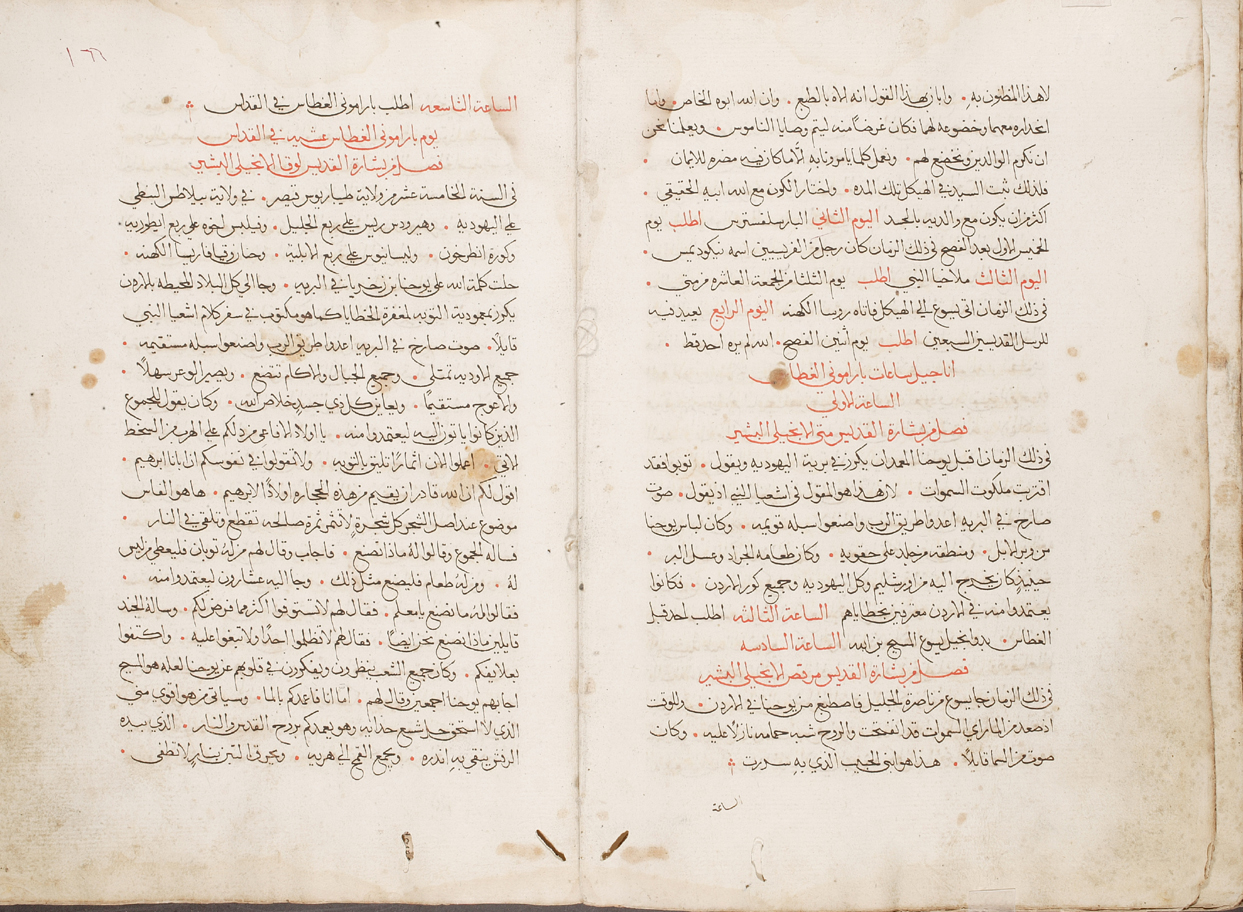 لاهذا المظنون به. وابان بهذا القول انه الاه بالطبع. وان الله ابوه الخاص. واما
انحداره معهما وخضوعه لهما فكان غرضًا منه ليتم وصايا الناموس. ويعلمنا نحن
ان نكرم الوالدين ونخضع لهم. ونعمل كلما يامرونا به الا ما كان فيه مضره للايمان.
فلذلك تبت السيد في الهيكل تلك المده. واختار الكون مع الله ابيه الحقيقي.
اكثر من ان يكون مع والديه بالجسد اليوم الثاني البار سلفسترس اطلب يوم
الخميس الاول بعد الفصح في ذلك الزمان كان رجل من الفريسيين اسمه نيكوديمس.
اليوم الثالث ملاخيا النبي اطلب يوم الثلثا من الجمعة العاشره من متي.
في ذلك الزمان اتي يسوع الي الهيكل فاتاه روسا الكهنه اليوم الرابع نعيد فيه
للرسل القديسين السبعين اطلب يوم اثنين الفصح. الله لم يره احد قط.
اناجيل ساعات بارامونى الغطاس
الساعة الاولي
فصل من بشارة القديس متي الانجيلي البشير
في ذلك الزمان اقبل يوحنا المعمدان يكرز في برية اليهوديه ويقول. توبوا فقد
اقتربت ملكوت السموات. لان هذا هو المقول في اشعيا النبي اذ يقول. صوت
صارخ في البريه اعدوا طريق الرب واصنعوا سبله قويمه. وكان لباس يوحنا
من وبر الابل. ومنطقه من جلد على حقويه. وكان طعامه الجراد وعسل البر.
حينيذٍ كان يخرج اليه من اورشليم وكل اليهوديه وجميع كور الاردن. فكانوا
يعتمدوا منه في الاردن معرفين بخطاياهم الساعة الثالثه اطلب احد قبل
الغطاس. بدو انجيل يسوع المسيح بن الله الساعة السادسه
فصل من بشارة القديس مرقص الانجيلي البشير
في ذلك الزمان جا يسوع من ناصرة الجليل فاصطبغ من يوحنا في الاردن. وللوقت
اذ صعد من الما راي السموات قد انفتحت والروح شبه حمامه نازلاً عليه. وكان
صوت من السما قايلاً. هذا هو ابني الحبيب الذي به سررت
الساعة
١٦٦
الساعة التاسعه اطلب بارامونى الغطاس في القداس
يوم بارامونى الغطاس عشيه في القداس
فصل من بشارة القديس لوقا الانجيلي البشير
في السنة الخامسة عشر من ولاية طيباريوس قيصر. في ولاية بيلاطس البنطي
علي اليهوديه. وهيرودس ريس علي ربع الجليل. وفيلبس اخوه علي ربع ايطوريه.
وكورة انطرخون. وليسانيوس علي ربع الابلية. وحنان وقيافا ريسا الكهنه.
حلت كلمة الله علي يوحنا بن زخريا في البريه. وجا الي كل البلاد المحيطه بالاردن
يكرز بمعمودية التوبه لمغفرة الخطايا كما هو مكتوب في سفر كلام اشعيا النبي
قايلاً. صوت صارخ في البريه اعدوا طريق الرب واصنعوا سبله مستقيمه.
جميع الاوديه تمتلى. وجميع الجبال والاكام تتضع. ويصير الوعر سهلاً.
والاعوج مستقيمًا. ويعاين كل ذي جسدٍ خلاص الله. وكان يقول للجموع
الذين كانوا ياتون اليه ليعتمدوا منه. يا اولاد الافاعي من دلكم علي الهرب من السخط
الاتي. اعملوا الان اثمارًا تليق بالتوبه. ولا تقولوا في نفوسكم ان ابانا ابرهيم.
اقول لكم ان الله قادر ان يقيم من هذه الحجاره اولادًا لابرهيم. ها هو الفاس
موضوع عند اصل الشجر وكل شجرةٍ لا تثمر ثمرة صالحه تقطع وتلقي في النار.
فساله الجموع وقالوا له ماذا نصنع. فاجاب وقال لهم من له ثوبان فليعطي من ليس
لهُ. ومن لهُ طعام فليصنع مثل ذلك. وجا اليه عشارون ليعتمدوا منه.
فقالوا له ما نصنع يا معلم. فقال لهم لا تستوفوا اكثر مما فرض لكم. وساله الجند
قايلين ماذا نصنع نحن ايضًا. فقال لهم لا تظلموا احدًا ولا تبغوا عليه. واكتفوا
بعلايفكم. وكان جميع الشعب ينتظرون ويفكرون في قلوبهم عن يوحنا لعله هو المسيح
اجابهم يوحنا اجمعين وقال لهم. اما انا فاعمدكم بالما. وسياتي من هو اقوي مني
الذي لا استحق حل شسع حذايه وهو يعمدكم بروح القدس والنار. الذي بيده
الرفش ينقي به اندره. ويجمع القمح الي هريه. ويحرق التبن بنارٍ لا تطفى.